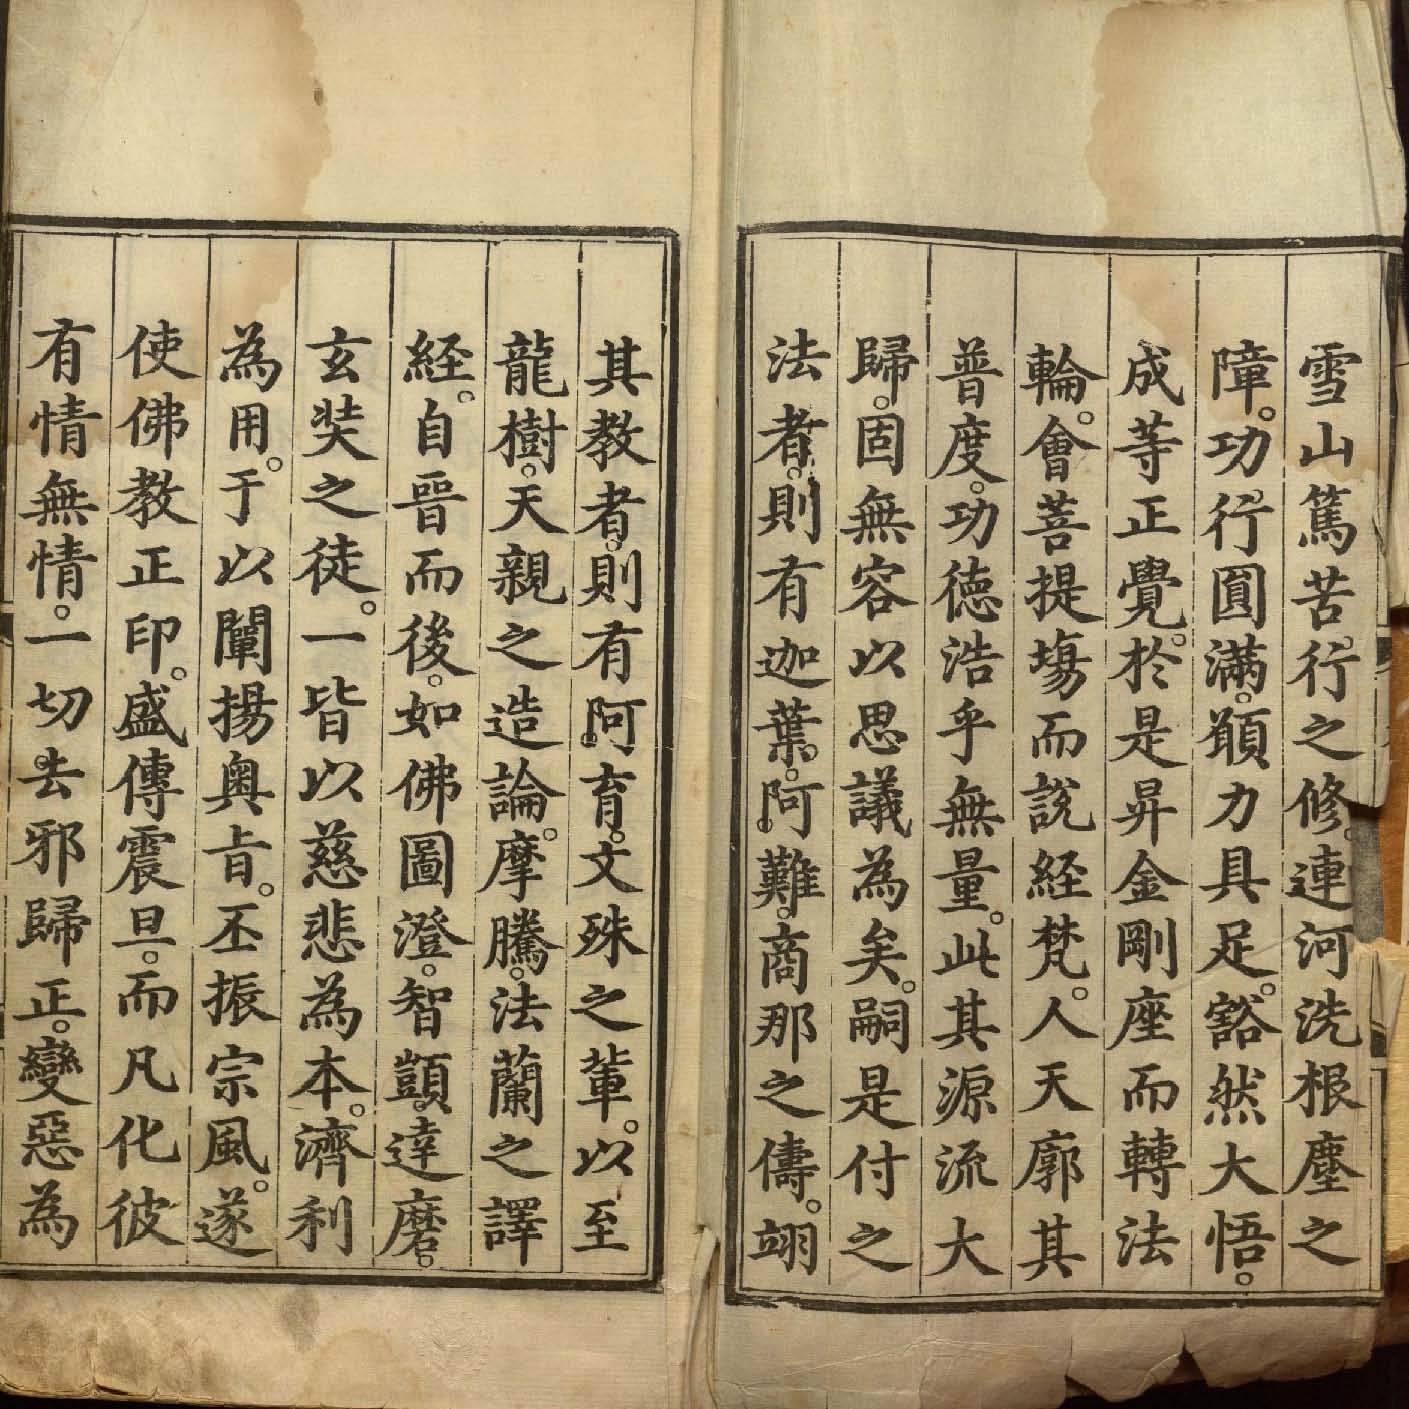 雪山篤苦行之修。連河洗根塵之
障。功行圓滿。願力具足。豁然大悟。
成等正覺。於是昇金剛座而轉法
輪。會菩提場而說経梵。人天廓其
普度。功德浩乎無量。此其源流大
歸。固無容以思議為矣。嗣是付之
法者。則有迦葉。阿難。商那之儔。翊
其教者。則有阿育。文殊之輩。以至
龍樹。天親之造論。摩騰。法蘭之譯
経。自晉而後。如佛圖澄。智顗。達磨。
玄奘之徒。一皆以慈悲為本。濟利
為用。于以闡揚奥旨。丕振宗風。遂
使佛教正印。盛傳震旦。而凡化彼
有情無情。一切去邪歸正。變惡為